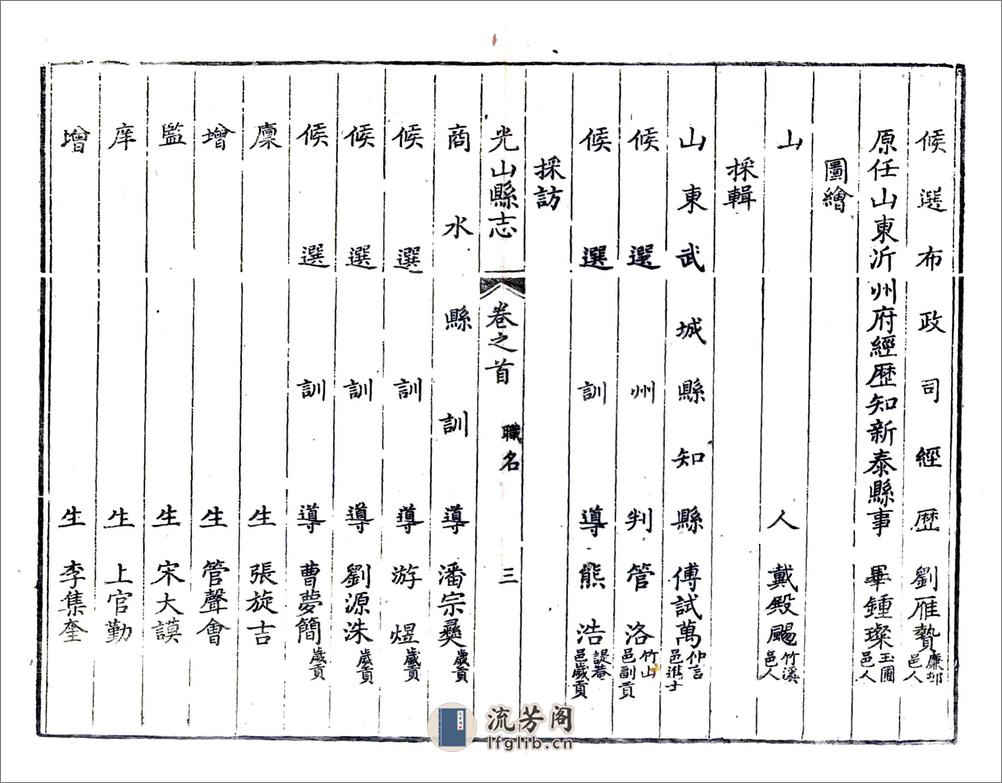 候選布政司經歷 劉雁贄 廉邨邑人
原任山東沂州府經歷知新泰縣事 畢鍾璨 玉圃邑人
圖繪
山人 戴殿颺 竹溪邑人
採輯
山東武城縣知縣 傅試萬 仲言邑進士
候選州判 管洛 竹山邑副貢
候選訓導 熊浩 邑歲貢
採訪
光山縣志 卷之首 職名 三
商水縣訓導 潘宗彝 歲貢
候選訓導 游煜 歲貢
候選訓導 劉源洙 歲貢
候選訓導 曹夢簡 歲貢
廩生 張旋吉
增生 管聲會
監生 宋大謨
庠生 上官勤
增生 李集奎
流芳阁
lfglib.cn